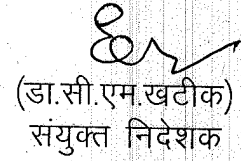 (डा.सी.एम.खटीक)
संयुक्त निदेशक